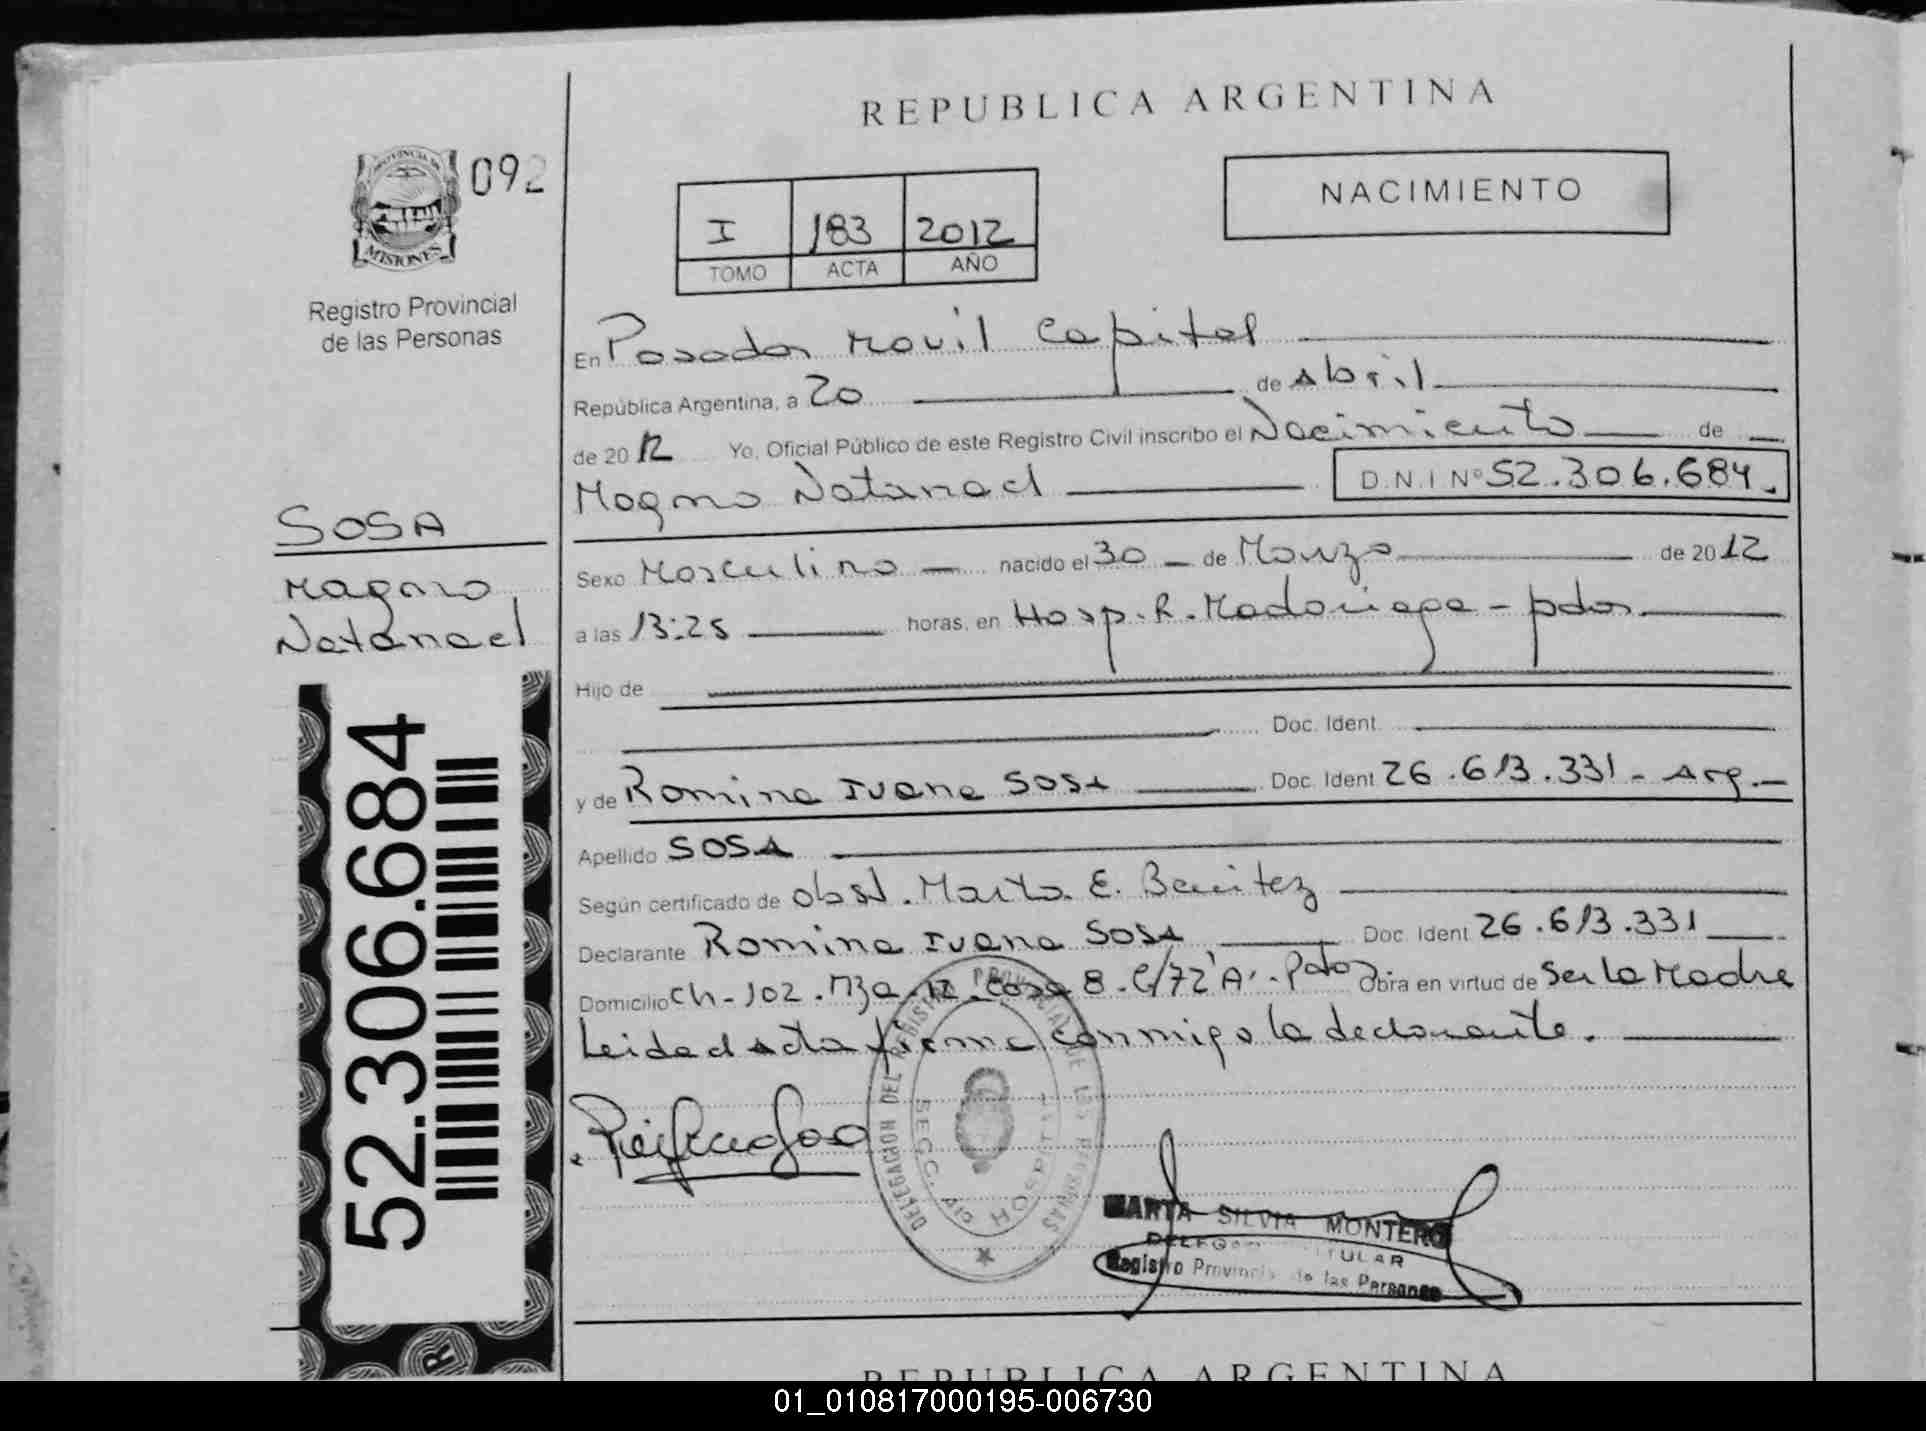 REPUBLICA ARGENTINA
PROVINCIA DE
MISIONES
092
Registro Provincial
de las Personas
I 183 2012
TOMO ACTA AÑO
NACIMIENTO
En Posadas Movil Capital
República Argentina, a 20 de Abril
de 2012 Yo, Oficial Público de este Registro Civil inscribo el Nacimiento de
Magno Natanael D.N.I Nº 52.306.684.
SOSA
Magno
Natanael
Sexo Masculino nacido el 30 de Marzo de 2012
a las 13:25 horas, en Hosp. R. Madariaga - pdas
Hijo de
Doc. Ident.
y de Romina Ivana SOSA Doc. Ident 26.613.331 - Arg.
Apellido SOSA
Según certificado de obst. Marta E. Benitez
Declarante Romina Ivana SOSA Doc. Ident 26.613.331
Domicilio Ch-102. Mza-12. Casa 8. C/72 "A". Pdas. Obra en virtud de Ser la Madre
Leida el Acta firma conmigo la declarante.
DELEGACION DEL REGISTRO PROVINCIAL DE LAS PERSONAS
SECC. HOSPITAL
MARTA SILVIA MONTERO
TITULAR
Registro Provincial de las Personas
52.306.684
R
REPUBLICA ARGENTINA
01_010817000195-006730